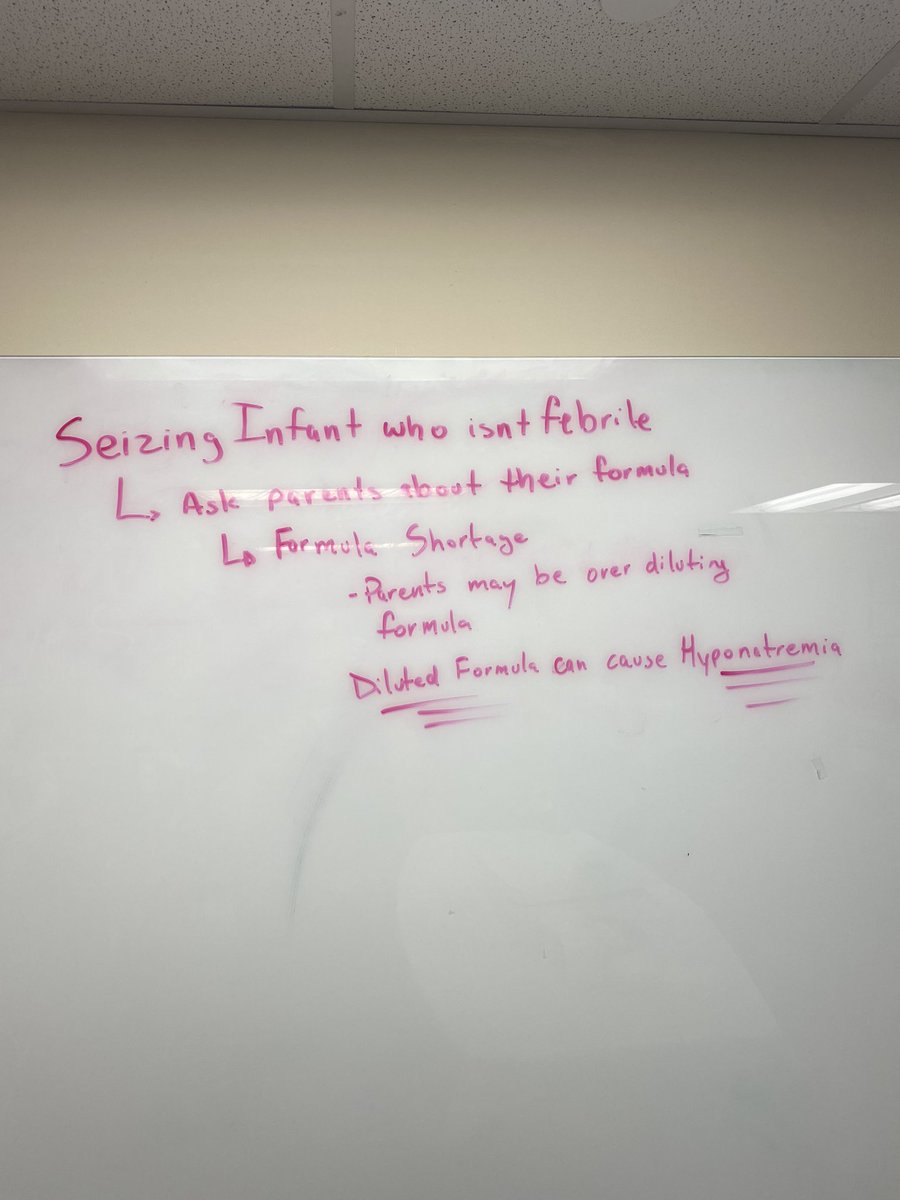 Seizing Infant who isnt febrile
↳ Ask parents about their formula
↳ Formula Shortage
- Parents may be over diluting
formula
Diluted Formula can cause Hyponatremia